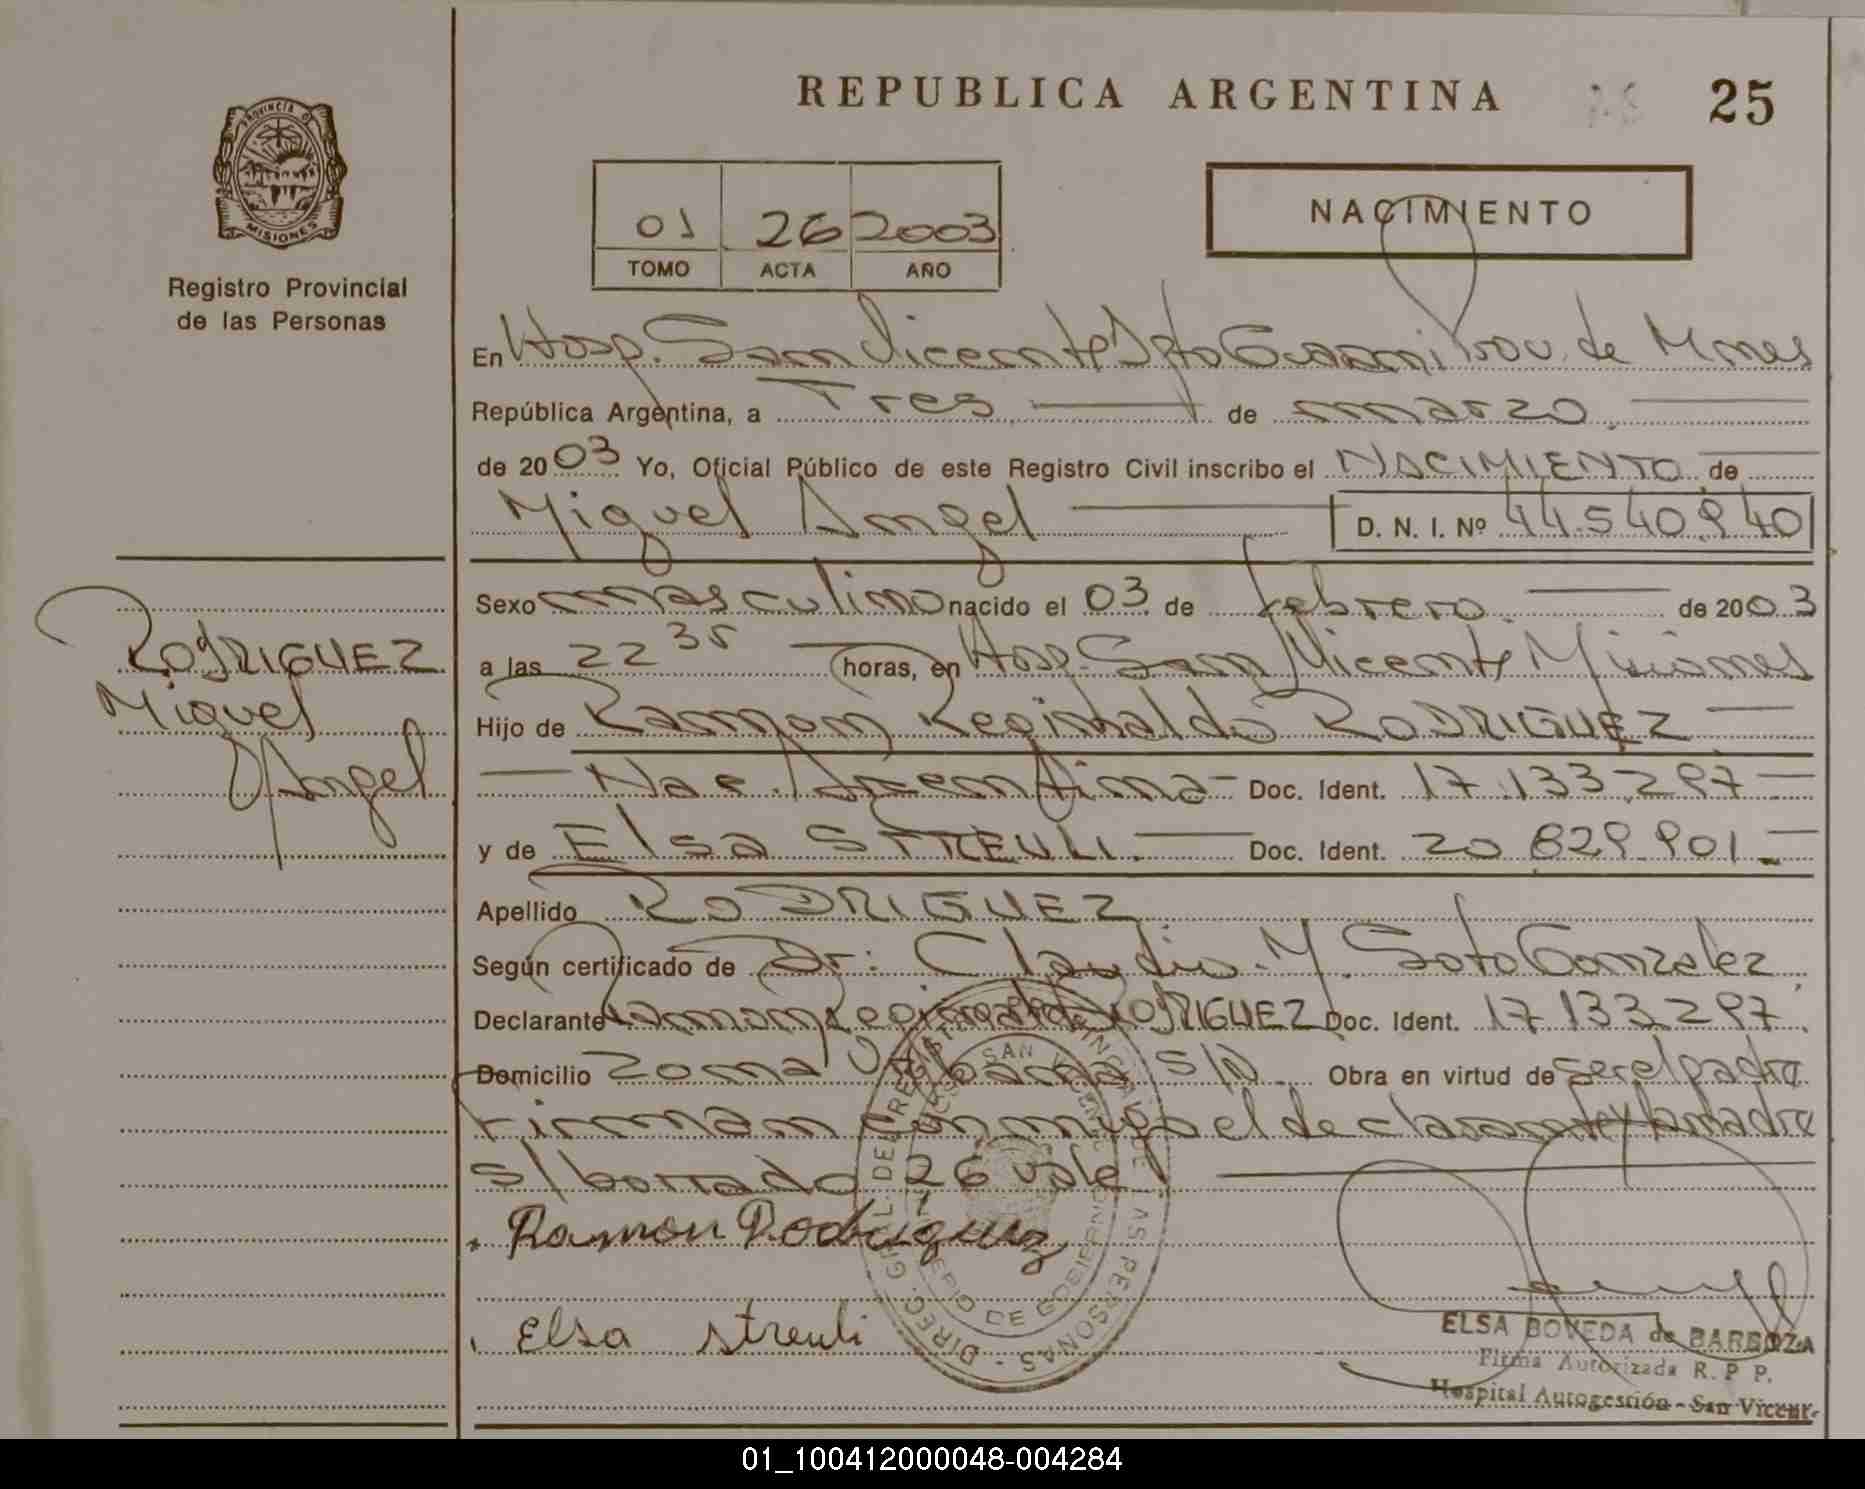 REPUBLICA ARGENTINA
25
PROVINCIA D
MISIONES
Registro Provincial
de las Personas
01 26 2003
TOMO ACTA AÑO
NACIMIENTO
En Hosp. San Vicente Dpto Guarani Prov. de Mnes
República Argentina, a Tres de marzo
de 2003 Yo, Oficial Público de este Registro Civil inscribo el NACIMIENTO de
Miguel Angel D. N. I. Nº 44.540.940
Sexo masculino nacido el 03 de febrero de 2003
RODRIGUEZ
Miguel
Angel
a las 22 35 horas, en Hosp. San Vicente Misiones
Hijo de Ramon Reginaldo RODRIGUEZ
Nac. Argentina Doc. Ident. 17.133.297
y de Elsa STREULI. Doc. Ident. 20.829.901.
Apellido RODRIGUEZ
Según certificado de Dr: Claudio M. Soto Gonzalez
Declarante Ramon Reginaldo RODRIGUEZ Doc. Ident. 17 133 297
Domicilio Zona Urbana S/N Obra en virtud de ser el padre
Firman conmigo el declarante y la madre
s/borrado 26 vale
Ramon Rodriguez
Elsa streuli
ELSA BOVEDA de BARBOZA
Firma Autorizada R. P. P.
Hospital Autogestión - San Vicent.
01_100412000048-004284